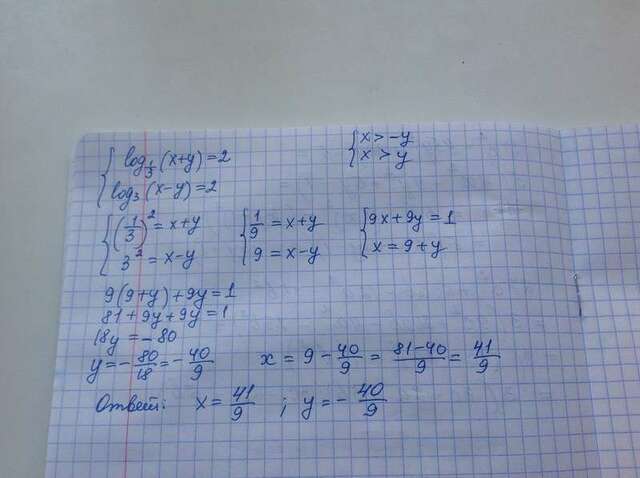 { log_{1/3}(x+y)=2   { x>-y
{ log₃(x-y)=2   { x>y
{ (1/3)²=x+y   { 1/9=x+y   { 9x+9y=1
{ 3²=x-y   { 9=x-y   { x=9+y
9(9+y)+9y=1
81+9y+9y=1
18y=-80
y=-80/18=-40/9   x=9-40/9=(81-40)/9=41/9
Ответ: x=41/9 ; y=-40/9